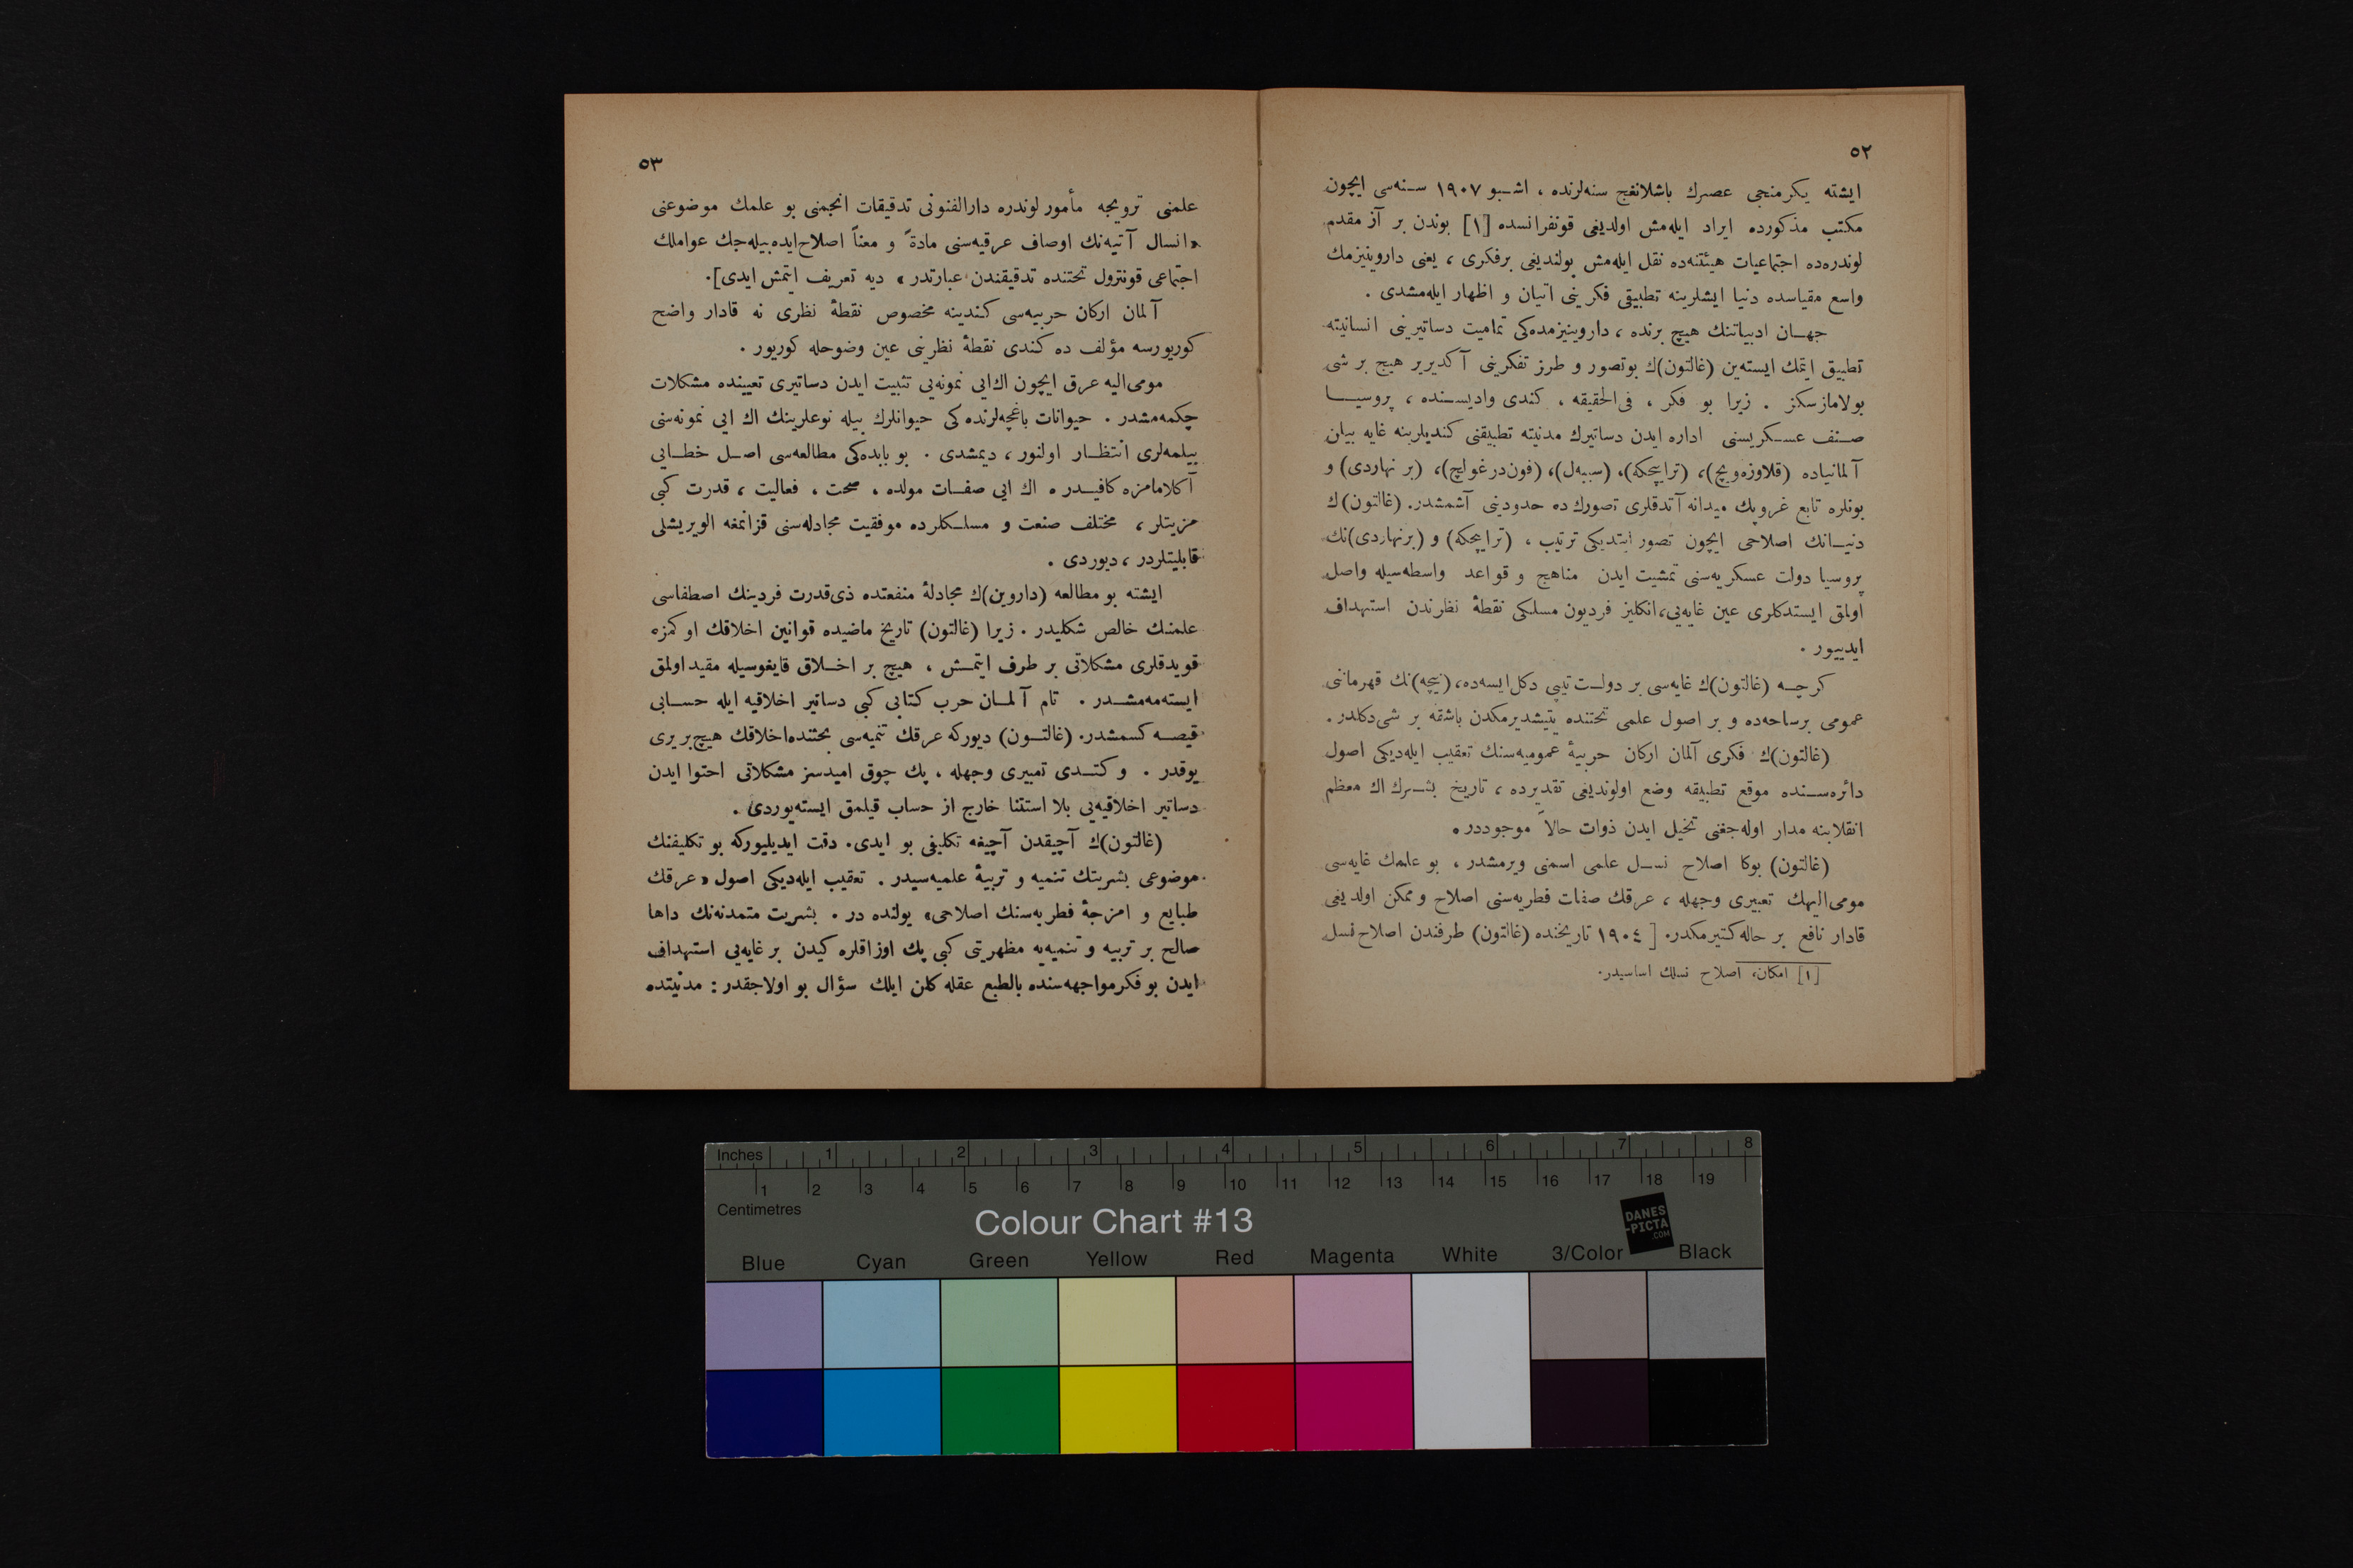 ٥٢
ايشته يكرمنجی عصرك باشلانغج سنه‌لرنده ، اشبو ١٩٠٧ سنه‌سی ايچون
مكتب مذكورده ايراد ايله‌مش اولديغی قونفرانسده [١] بوندن بر آز مقدم
لوندره‌ده اجتماعيات هيئتنه‌ده نقل ايله‌مش بولنديغی برفكری ، يعنی داروينيزمك
واسع مقياسده دنيا ايشلرينه تطبيقی فكرينی اتيان و اظهار ايله‌مشدی .
جهان ادبياتنك هيچ برنده ، داروينيزمده‌كی تماميت دساتيرينی انسانيته
تطبيق ايتمك ايسته‌ين (غالتون)ك بوتصور و طرز تفكرينی آكديرير هيچ بر شی
بولامازسكز . زيرا بو فكر ، فی‌الحقيقه ، كندی واديسنده ، پروسيا
صنف عسكريسنی اداره ايدن دساتيرك مدنيته تطبيقنی كنديلرينه غايه بيلن
آلمانياده (قلاوزه‌ويچ)، (ترايچكه)، (سيبه‌ل)، (فون‌درغولچ)، (برنهاردی) و
بونلره تابع غروپك ميدانه آتدقلری تصورك ده حدودينی آشمشدر. (غالتون)ك
دنيانك اصلاحی ايچون تصور ايتديكی ترتيب ، (ترايچكه) و (برنهاردی)نك
پروسيا دولت عسكريه‌سنی تمشيت ايدن مناهج و قواعد واسطه‌سيله واصل
اولمق ايستدكلری عين غايه‌يی، انكليز فرديون مسلكی نقطهٔ نظرندن استهداف
ايدييور .
كرچه (غالتون)ك غايه‌سی بر دولت تيپی دكل ايسه‌ده، (نيچه)نك قهرماننی
عمومی برساحه‌ده و بر اصول علمی تحتنده يتيشديرمكدن باشقه بر شی دكلدر .
(غالتون)ك فكری آلمان اركان حربيهٔ عموميه‌سنك تعقيب ايله‌ديكی اصول
دائره‌سنده موقع تطبيقه وضع اولونديغی تقديرده ، تاريخ بشرك اك معظم
انقلابنه مدار اوله‌جغنی تخيل ايدن ذوات حالاً موجوددر .
(غالتون) بوكا اصلاح نسل علمی اسمنی ويرمشدر ، بو علمك غايه‌سی
مومی‌اليهك تعبيری وجهله ، عرقك صفات فطريه‌سنی اصلاح و ممكن اولديغی
قادار نافع بر حاله كتيرمكدر. [ ١٩٠٤ تاريخنده (غالتون) طرفندن اصلاح نسل
[١] امكان، اصلاح نسلك اساسيدر.
٥٣
علمنی ترويجه مأمور لوندره دارالفنونی تدقيقات انجمنی بو علمك موضوعنی
« انسال آتيه‌نك اوصاف عرقيه‌سنی مادةً و معناً اصلاح ايده‌بيله‌جك عواملك
اجتماعی قونترول تحتنده تدقيقندن عبارتدر » ديه تعريف ايتمش ايدی].
آلمان اركان حربيه‌سی كندينه مخصوص نقطهٔ نظری نه قادار واضح
كوريورسه مؤلف ده كندی نقطهٔ نظرينی عين وضوحله كوريور .
مومی‌اليه عرق ايچون اك‌ايی نمونه‌يی تثبيت ايدن دساتيری تعيينده مشكلات
چكمه‌مشدر . حيوانات باغچه‌لرنده كی حيوانلرك بيله نوعلرينك اك ايی نمونه‌سنی
بيلمه‌لری انتظار اولنور ، ديمشدی . بو بابده‌كی مطالعه‌سی اصل خطايی
آكلامامزه كافيدر . اك ايی صفات مولده ، صحت ، فعاليت ، قدرت كبی
مزيتلر ، مختلف صنعت و مسلكلرده موفقيت مجادله‌سنی قزانمغه الويريشلی
قابليتلردر ، ديوردی .
ايشته بو مطالعه (داروين)ك مجادلهٔ منفعتده ذی‌قدرت فردينك اصطفاسی
علمنك خالص شكليدر . زيرا (غالتون) تاريخ ماضيده قوانين اخلاقك اوكمزه
قويدقلری مشكلاتی بر طرف ايتمش ، هيچ بر اخلاق قايغوسيله مقيد اولمق
ايسته‌مه‌مشدر . تام آلمان حرب كتابی كبی دساتير اخلاقيه ايله حسابی
قيصه كسمشدر. (غالتون) ديوركه عرقك تنميه‌سی بحثنده اخلاقك هيچ بر يری
يوقدر . و كندی تعبيری وجهله ، پك چوق اميدسز مشكلاتی احتوا ايدن
دساتير اخلاقيه‌يی بلا استثنا خارج از حساب قيلمق ايسته‌يوردی .
(غالتون)ك آچيقدن آچيغه تكليفی بو ايدی. دقت ايديليوركه بو تكليفنك
موضوعی بشريتك تنميه و تربيهٔ علميه‌سيدر . تعقيب ايله‌ديكی اصول « عرقك
طبايع و امزجهٔ فطريه‌سنك اصلاحی» يولنده در . بشريت متمدنه‌نك داها
صالح بر تربيه و تنميه‌يه مظهريتی كبی پك اوزاقلره كيدن بر غايه‌يی استهداف
ايدن بو فكر مواجهه‌سنده بالطبع عقله كلن ايلك سؤال بو اولاجقدر : مدنيتده
Inches 1 2 3 4 5 6 7 8
1 2 3 4 5 6 7 8 9 10 11 12 13 14 15 16 17 18 19
Centimetres
Colour Chart #13
DANES
-PICTA
.COM
Blue Cyan Green Yellow Red Magenta White 3/Color Black